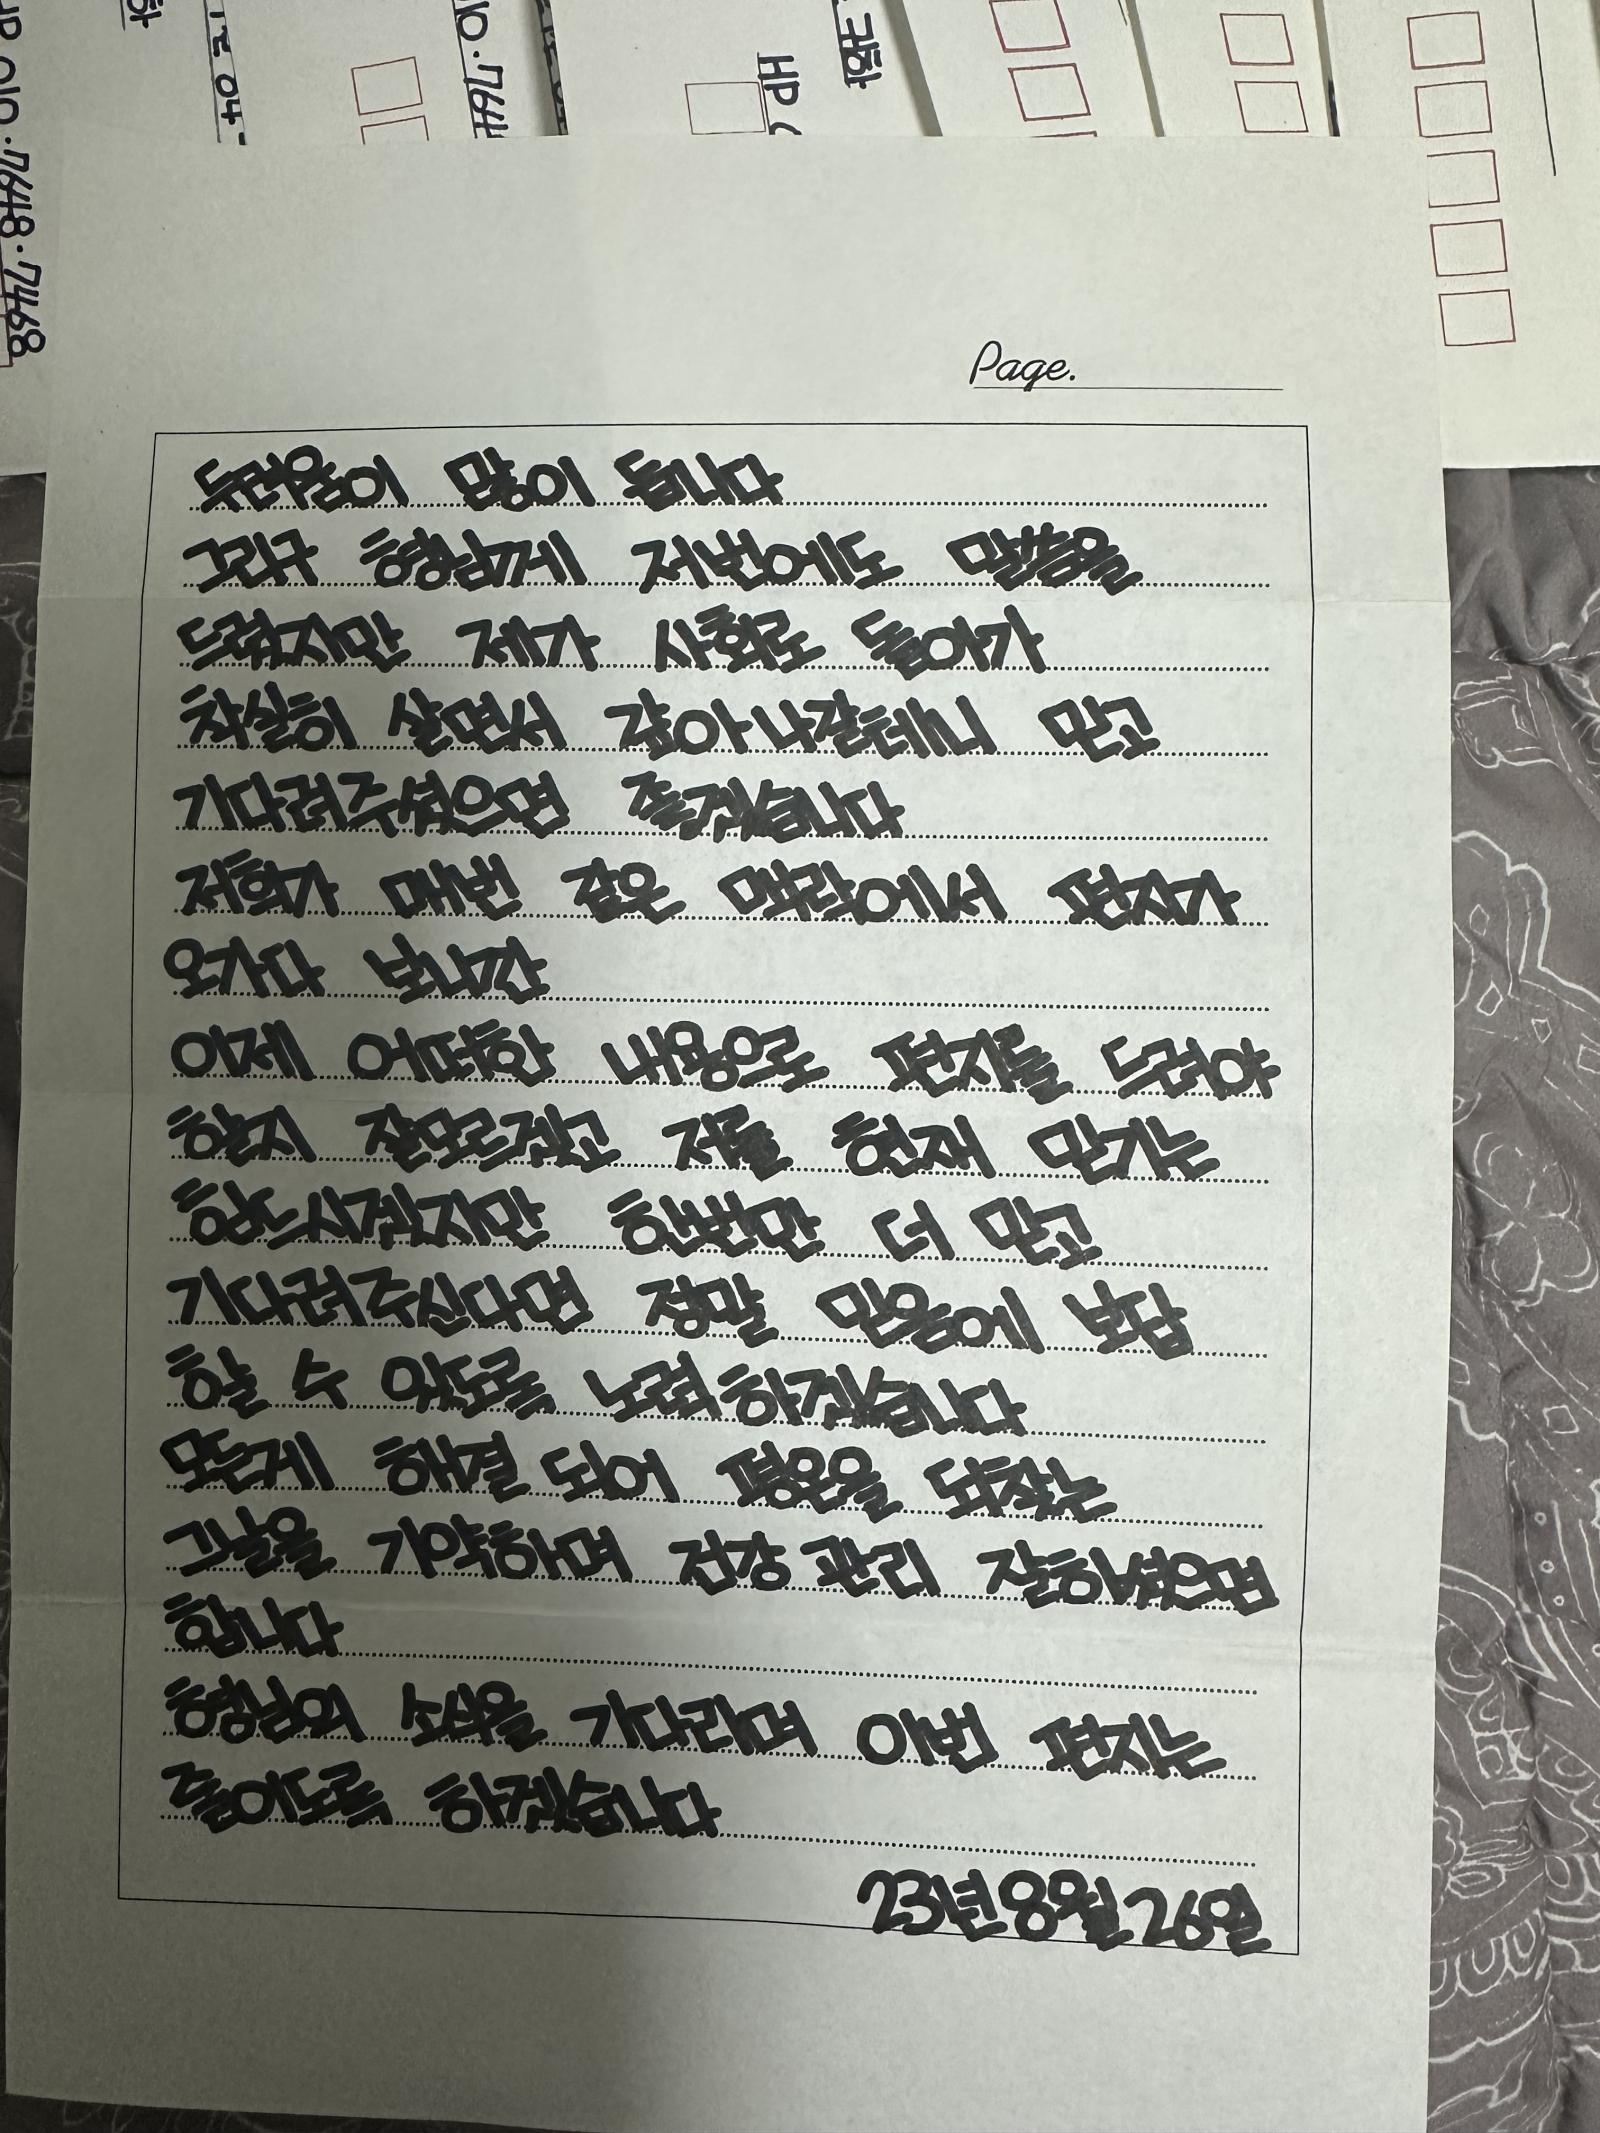 HP 010.7648.7468
귀하
HP
Page.
두려움이 많이 듭니다
그리구 형님께 저번에도 말씀을
드렸지만 제가 사회로 돌아가
착실히 살면서 갚아 나갈테니 믿고
기다려주셨으면 좋겠습니다
저희가 매번 같은 맥락에서 편지가
오가다 보니간
이제 어떠한 내용으로 편지를 드려야
할지 잘모르겠고 저를 현재 믿기는
힘드시겠지만 한번만 더 믿고
기다려주신다면 정말 믿음에 보답
할 수 있도록 노력하겠습니다
모든게 해결 되어 평온을 되찾는
그날을 기약하며 건강 관리 잘하셨으면
합니다
형님의 소식을 기다리며 이번 편지는
줄이도록 하겠습니다
23년 8월 26일